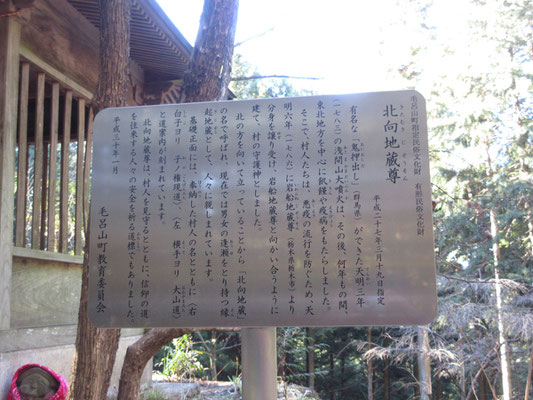 毛呂山町指定民俗文化財　有形民俗文化財
きたむきじぞうそん
北向地蔵尊
平成二十七年三月十九日指定
有名な「鬼押出し」（群馬県）ができた天明三年
（一七八三）の浅間山大噴火は、その後、何年もの間、
東北地方を中心に飢饉や疫病をもたらしました。
そこで、村人たちは、悪疫の流行を防ぐため、天
明六年（一七八六）に岩船地蔵尊（栃木県栃木市）より
分身を譲り受け、岩船地蔵尊と向かい合うように
建て、村の守護神としました。
北の方を向いて立っていることから「北向地蔵」
の名で呼ばれ、現在では男女の逢瀬をとり持つ縁
起地蔵として、人々に親しまれています。
基礎正面には、奉納した村人の名とともに（右
白子ヨリ　子ノ権現道）（左　横手ヨリ　大山道）
と道案内が刻まれています。
北向地蔵尊は、村人を見守るとともに、信仰の道
を往来する人々の安全を祈る道標でもありました。
平成三十年一月
毛呂山町教育委員会